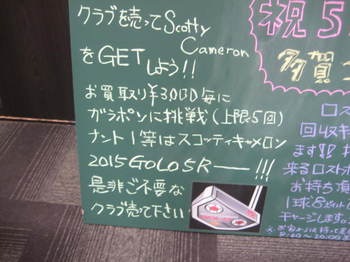 クラブを売ってScotty
Cameron
をGETしよう!!
お買取り¥3,000毎に
ガラポンに挑戦(上限5回)
ナント1等はスコッティキャメロン
2015GOLO5Rー!!!
是非ご不要な
クラブ売って下さい
祝5
多賀
ロス
回収キ
ます!!
来るロストボ
お持ち頂
1球8
チャージします。